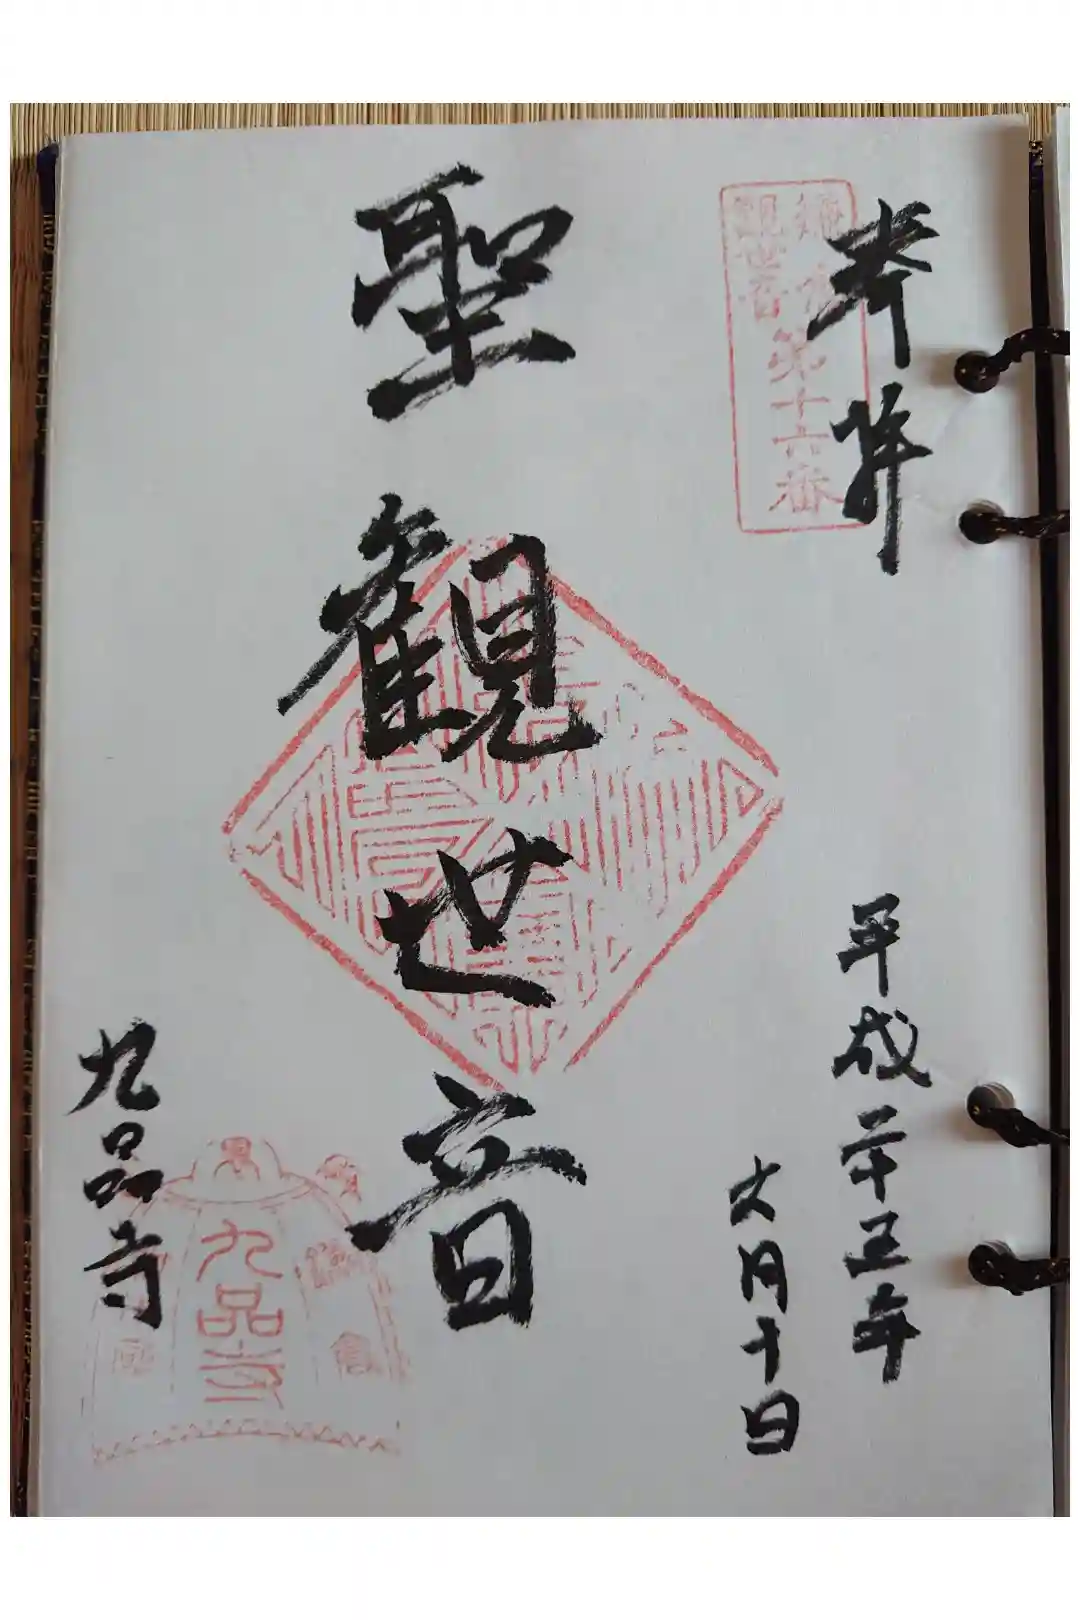 奉拝
鎌倉
観世音
第十六番
平成二十五年
六月十日
聖観世音
九品寺
九品寺